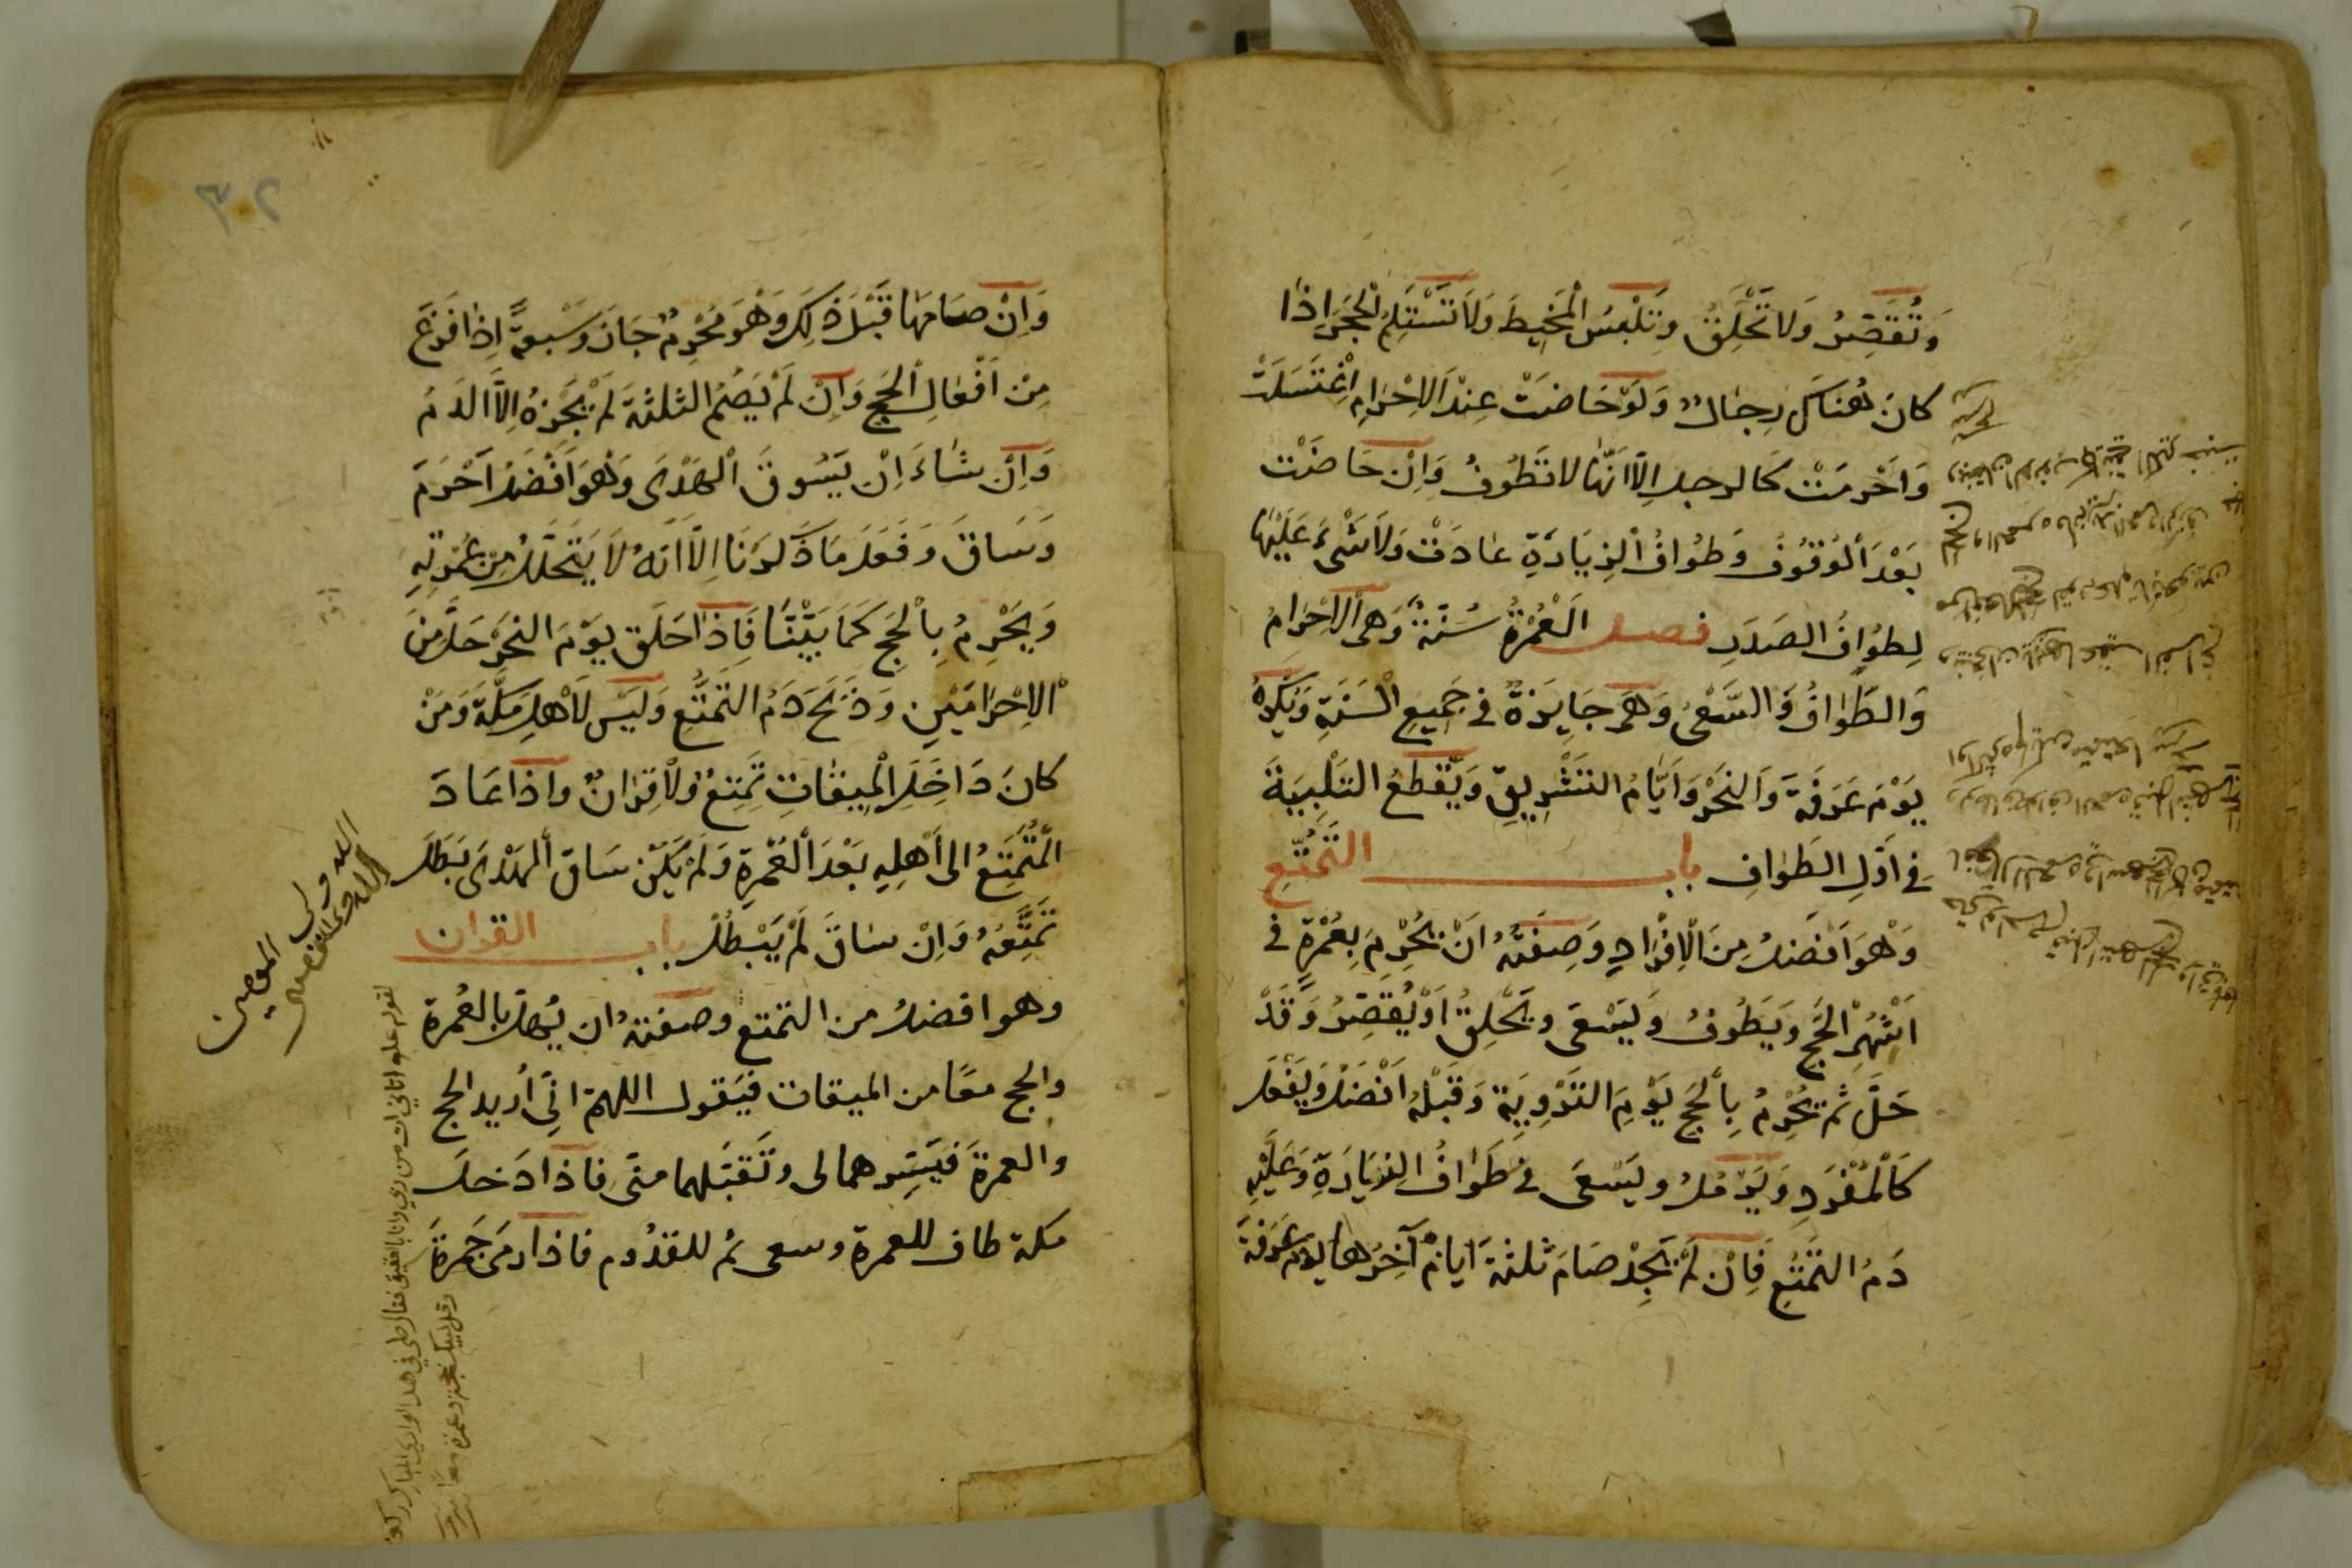 وَتُقَصِّرُ وَلَا تَحْلِقُ وَتَلْبَسُ الْمَخِيطَ وَلَا تَسْتَلِمُ الْحَجَرَ اِذَا
كانَ هُنَاكَ رِجَالٌ وَلَوْ حَاضَتْ عِنْدَ الْاِحْرَامِ اِغْتَسَلَتْ
وَاَحْرَمَتْ كَالرجلِ اِلَّا اَنَّهَا لا تَطُوفُ وَاِنْ حَاضَتْ
بَعْدَ الْوُقُوفِ وَطَوَافِ الزِيَارَةِ عَادَتْ وَلَا شَىْءَ عَلَيْهَا
لِطَوَافِ الصَدَرِ فصل اَلْعُمْرَةُ سُنَّةٌ وَهِىَ الْاِحْرَامُ
وَالطَّوَافُ وَالسَّعْىُ وَهِىَ جَايِزَةٌ فى جَمِيعِ السَّنَةِ وَيُكْرَهُ
يَوْمَ عَرَفَةَ وَالنَحْرِ وَاَيَّامَ التَشْرِيقِ وَيَقْطَعُ التَلْبِيَةَ
فى اَوَّلِ الطَوَافِ باب التَّمَتُّعِ
وَهْوَ اَفْضَلُ مِنَ الْاِفْرَادِ وَصِفَتُهُ اَنْ يُحْرِمَ بِعُمْرَةٍ فى
اَشْهُرِ الْحَجِّ وَيَطُوفُ وَيَسْعَى وَيَحْلِقُ اَوْ يُقَصِّرُ وَقَدْ
حَلَّ ثُم يُحْرِمُ بِالْحَجِّ يَوْمَ التَرْوِيَةِ وَقَبْلَهُ اَفْضَلُ وَيَفْعَلُ
كَالْمُفْرِدِ وَيَرْمُلُ وَيَسْعَى فى طَوَافِ الزِيَارَةِ وَعَلَيْهِ
دَمُ التَمَتُّعِ فَاِنْ لَمْ يَجِدْ صَامَ ثلثةَ اَيامٍ آخِرُها يومُ عَرَفَةَ
٣٠٢
وَاِنْ صَامَهَا قَبْلَ ذٰلِكَ وَهْوَ مُحْرِمٌ جَازَ وَسَبْعَةً اِذَا فَرَغَ
مِنْ اَفْعَالِ الْحَجِّ وَاِنْ لَمْ يَصُمِ الثلثةَ لَمْ يُجْزِهُ اِلَّا الدَمُ
وَاِنْ شَاءَ اَنْ يَسُوقَ الْهَدْىَ وَهْوَ اَفْضَلُ اَحْرَمَ
وَسَاقَ وَفَعَلَ مَا ذَكَرْنَا اِلَّا اَنَّهُ لَا يَتَحَلَّلُ مِنْ عُمْرَتِهِ
وَيُحْرِمُ بِالْحَجِّ كَمَا بَيَّنَّا فَاِذَا حَلَقَ يَوْمَ النَحْرِ حَلَّ مِنَ
الْاِحْرَامَيْنِ وَذَبَحَ دَمَ التَمَتُّعِ وَلَيْسَ لِاَهْلِ مَكَّةَ وَمَنْ
كانَ دَاخِلَ الْمِيقَاتِ تَمَتُّعٌ وَلَا قِرَانٌ وَاِذَا عَادَ
الْمُتَمَتِّعُ الى اَهْلِهِ بَعْدَ الْعُمْرَةِ وَلَمْ يَكُنْ سَاقَ الْهَدْىَ بَطَلَ
تَمَتُّعُهُ وَاِنْ سَاقَ لَمْ يَبْطُلْ باب القران
وهو افضلُ من التمتع وصفتهُ ان يُهِلَّ بالعُمرة
والحج معًا من الميقات فيَقول اللهمّ انِّى أريد الحج
والعمرةَ فيَسِّرهما لى وتَقبَّلهما منّى فاذا دَخلَ
مكة طاف للعمرة وسعى ثم للقدُوم فاذا رمَى جَمرةَ